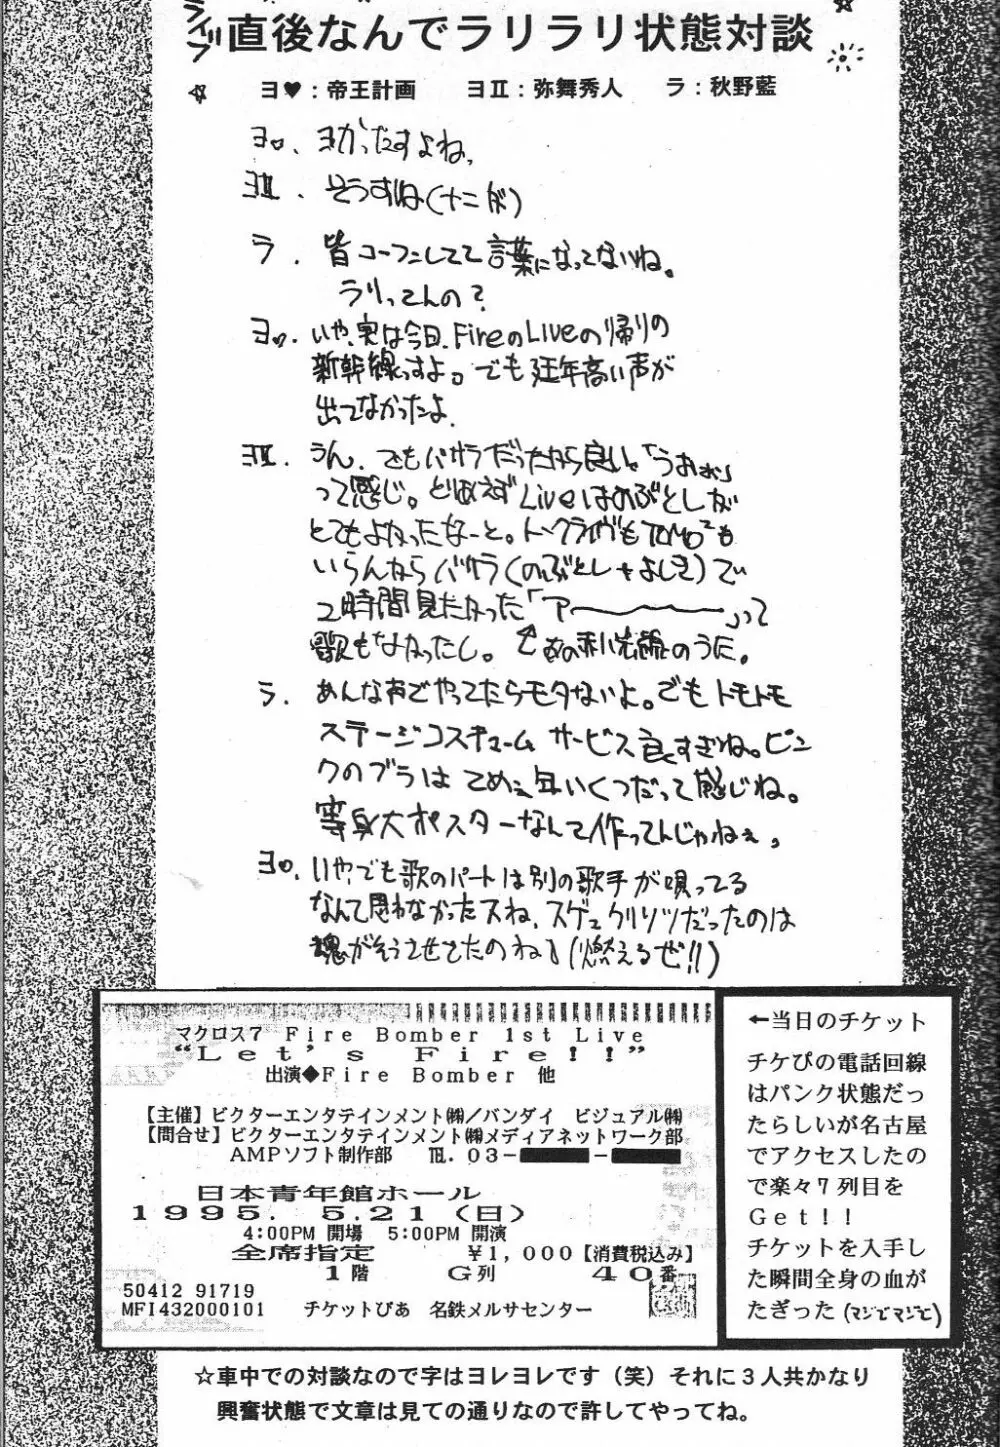 ライブ直後なんでラリラリ状態対談
ヨ♥：帝王計画　ヨⅡ：弥舞秀人　ラ：秋野藍
ヨ♥．ヨかったすよね、
ヨⅡ．そうすね(十二が)
ラ．皆コーフンしてて言葉になってないね。
ラリってんの？
ヨ♥．いや、実は今日、FireのLiveの帰りの
新幹線っすよ。でも延年高い声が
出てなかったよ．
ヨⅡ．うん、でもバサラだったから良い。「うおぉ」
って感じ。とりあえずLiveはのぶとしが
とてもよかったなーと。トークライヴもTOMO²も
いらんからバサラ(のぶとし+よしき)で
2時間見たかった「ア〜〜〜」って
歌もなかったし。 あの赤い光線のうた。
ラ．あんな声でやってたらモタないよ。でもトモトモ
ステージコスチューム サービス良すぎね。ピン
クのブラは てめぇ年いくつだって感じね。
等身大ポスターなんて作ってんじゃねぇ。
ヨ♥．いや、でも歌のパートは別の歌手が唄ってる
なんて思わなかったスね、スゲェクリソツだったのは
魂がそうさせてたのね♪(燃えるぜ!!)
マクロス7 Fire Bomber 1st Live
“Let's Fire!!”
出演◆Fire Bomber 他
【主催】ビクターエンタテインメント㈱／バンダイ ビジュアル㈱
【問合せ】ビクターエンタテインメント㈱メディアネットワーク部
AMPソフト制作部　℡. 03-
日本青年館ホール
1995. 5.21 (日)
4:00PM 開場　5:00PM 開演
全席指定　￥1,000【消費税込み】
1階　G列　40番
50412 91719
MFI432000101　チケットぴあ 名鉄メルサセンター
←当日のチケット
チケぴの電話回線
はパンク状態だっ
たらしいが名古屋
でアクセスしたの
で楽々7列目を
Get！！
チケットを入手し
た瞬間全身の血が
たぎった(マジでマジで)
☆車中での対談なので字はヨレヨレです（笑）それに3人共かなり
興奮状態で文章は見ての通りなので許してやってね。